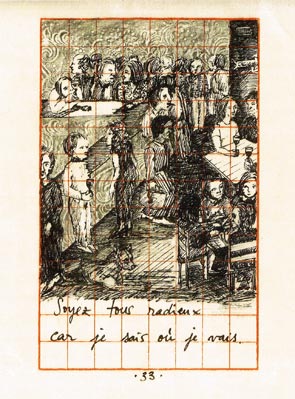 Soyez tous radieux
car je sais où je vais.
·33·